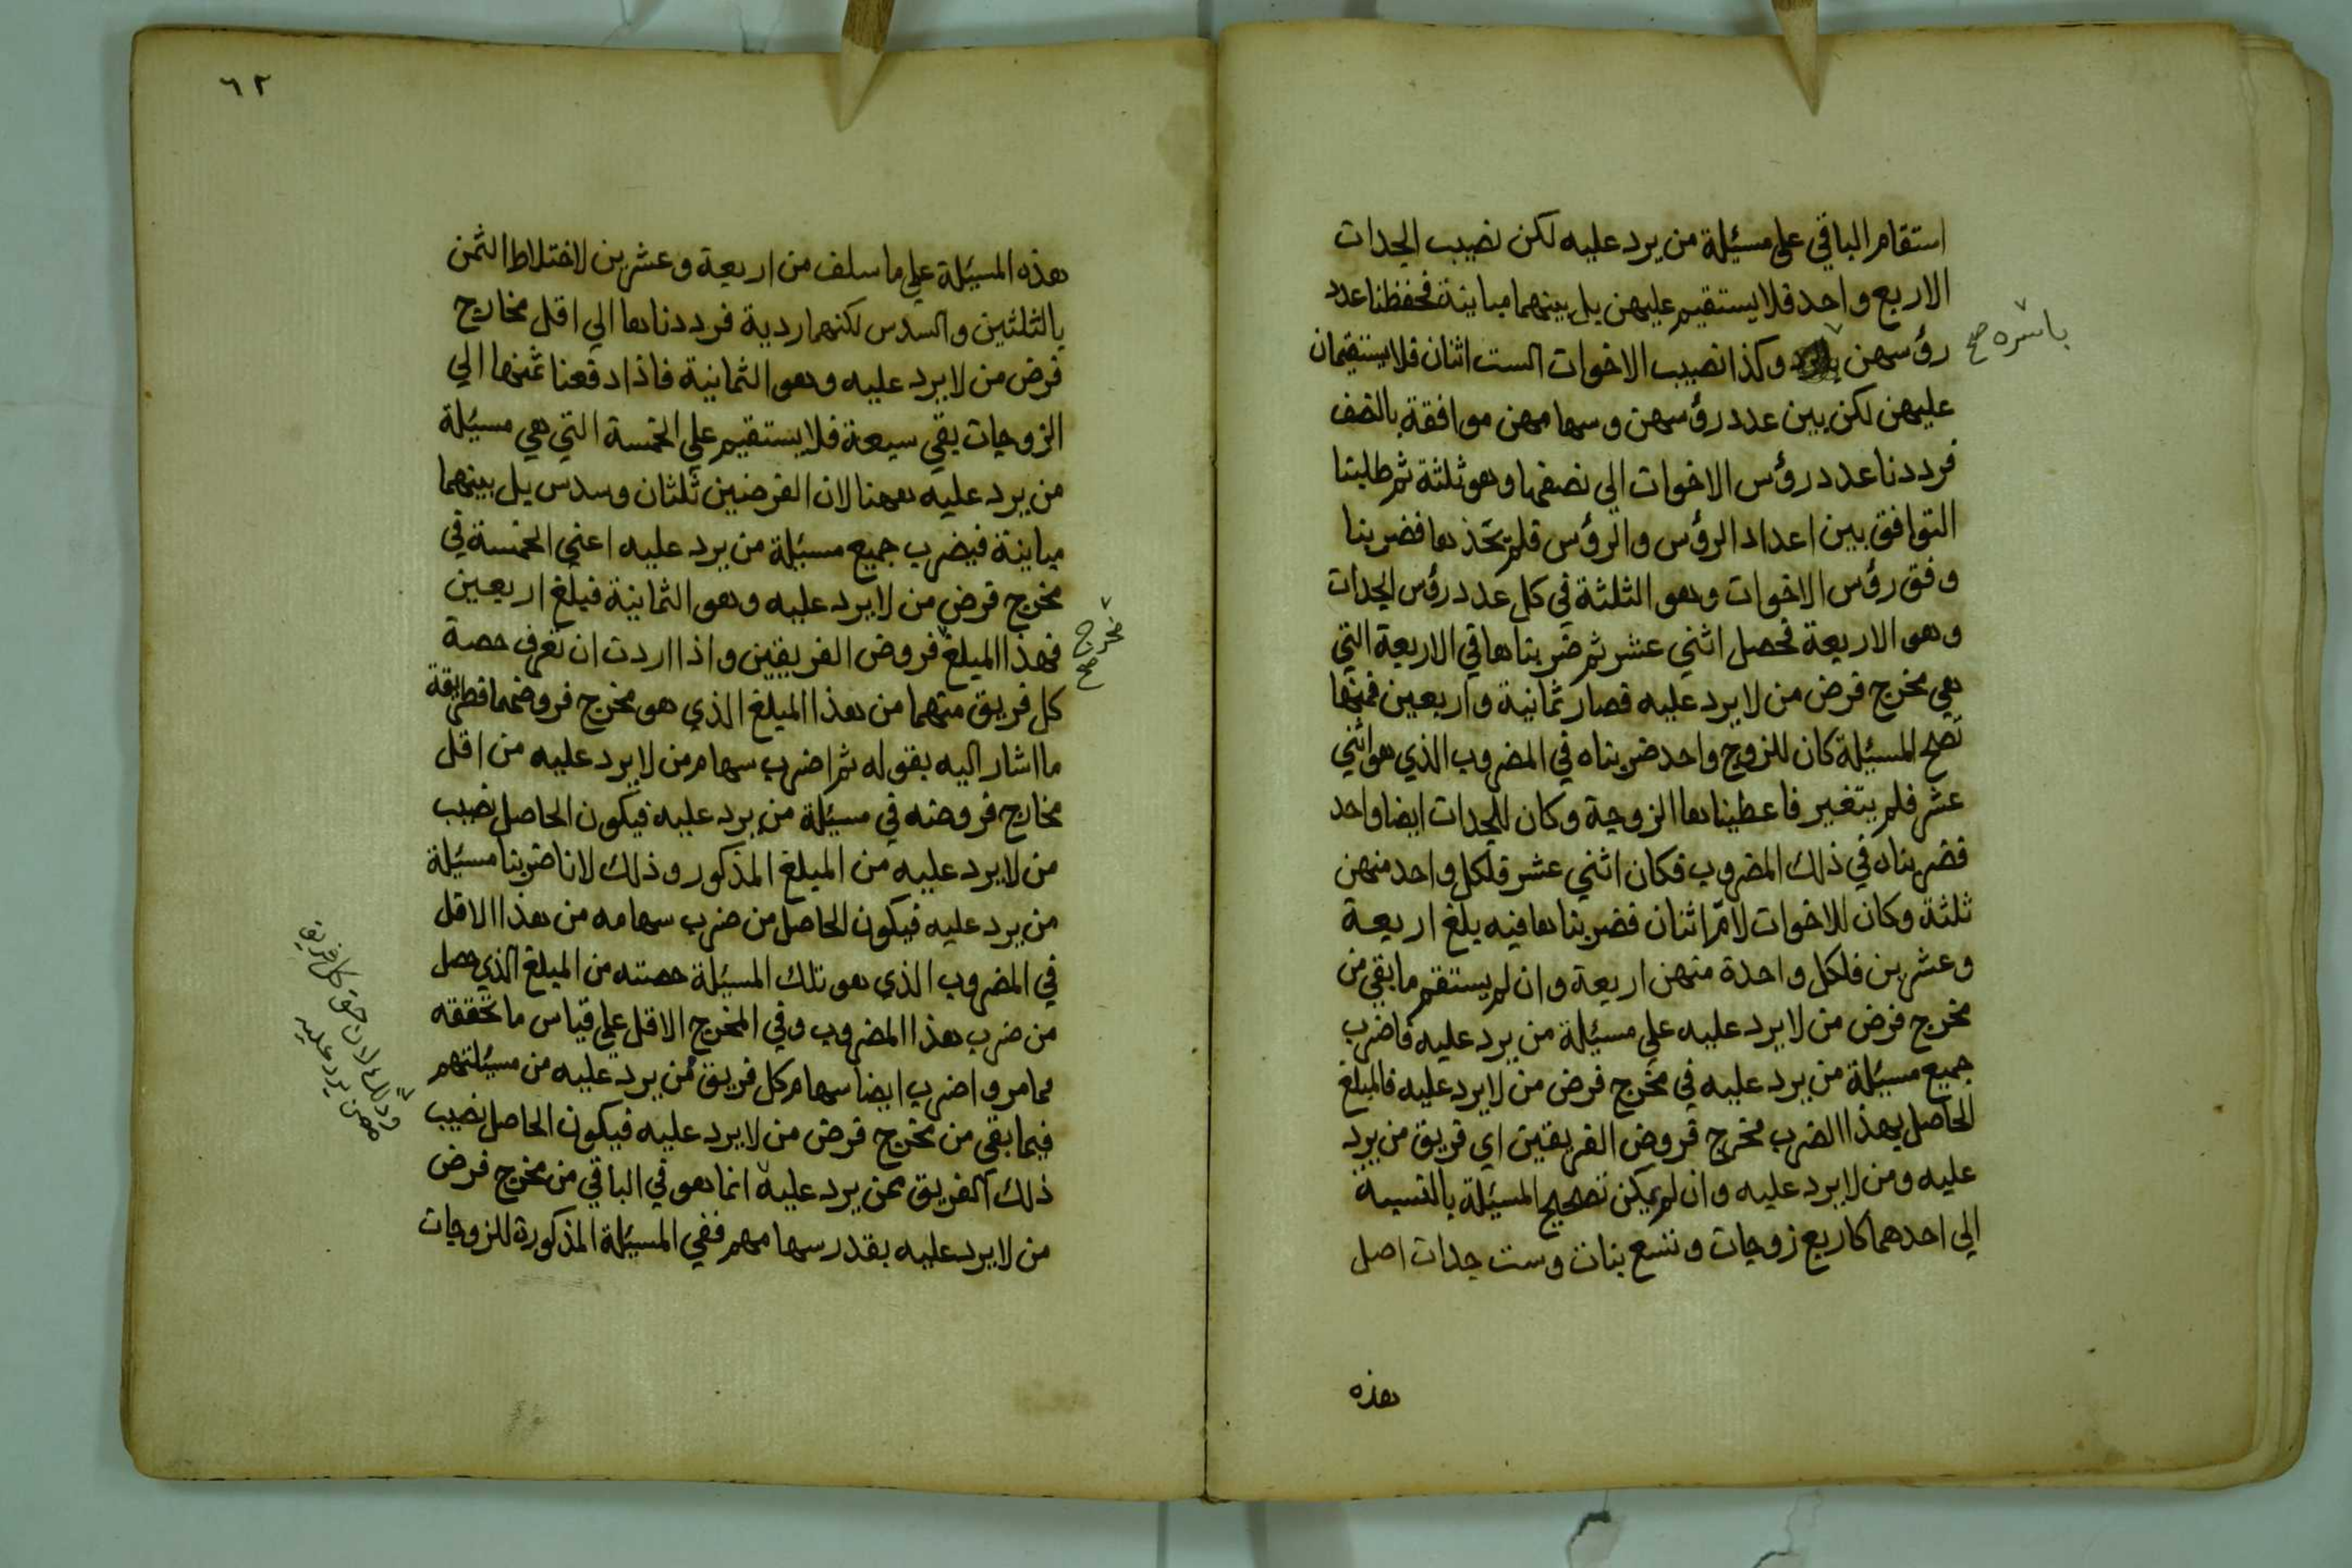 استقام الباقي على مسئلة من يرد عليه لكن نصيب الجدات
الاربع واحد فلا يستقيم عليهن بل بينهما مباينة فحفظنا عدد
رؤسهن وكذا نصيب الاخوات الست اثنان فلا يستقيمان
باسره صح
عليهن لكن بين عدد رؤسهن وسهامهن موافقة بالنصف
فرددنا عدد رؤس الاخوات الي نصفها وهو ثلثة ثم طلبنا
التوافق بين اعداد الرؤس والرؤس فلم نجدها فضربنا
وفق رؤس الاخوات وهو الثلثة في كل عدد رؤس الجدات
وهو الاربعة فحصل اثني عشر ثم ضربناها في الاربعة التي
هي مخرج فرض من لا يرد عليه فصار ثمانية واربعين فمنها
تصح المسئلة كان للزوج واحد ضربناه في المضروب الذي هو اثني
عشر فلم يتغير فاعطيناها الزوجة وكان للجدات ايضا واحد
فضربناه في ذلك المضروب فكان اثني عشر فلكل واحد منهن
ثلثة وكان للاخوات لامّ اثنان فضربناها فيه بلغ اربعة
وعشرين فلكل واحدة منهن اربعة وان لم يستقم ما بقي من
مخرج فرض من لا يرد عليه علي مسئلة من يرد عليه فاضرب
جميع مسئلة من يرد عليه في مخرج فرض من لا يرد عليه فالمبلغ
الحاصل بهذا الضرب مخرج فروض الفريقين اي فريق من يرد
عليه ومن لا يرد عليه وان لم يمكن تصحيح المسئلة بالنسبة
الي احدهما كاربع زوجات وتسع بنات وست جدات اصل
هذه
٦٢
هذه المسئلة علي ما سلف من اربعة وعشرين لاختلاط الثمن
بالثلثين والسدس لكنها ردية فرددناها الي اقل مخارج
فرض من لا يرد عليه وهو الثمانية فاذا دفعنا ثمنها الي
الزوجات بقي سبعة فلا يستقيم علي الخمسة التي هي مسئلة
من يرد عليه ههنا لان الفرضين ثلثان وسدس بل بينهما
مباينة فيضرب جميع مسئلة من يرد عليه اعني الخمسة في
مخرج فرض من لا يرد عليه وهو الثمانية فبلغ اربعين
فهذا المبلغ فروض الفريقين واذا اردت ان تعرف حصة
مخرج صح
كل فريق منهما من هذا المبلغ الذي هو مخرج فروضهما فطريقة
ما اشار اليه بقوله ثم اضرب سهام من لا يرد عليه من اقل
مخارج فروضه في مسئلة من يرد عليه فيكون الحاصل نصيب
من لا يرد عليه من المبلغ المذكور وذلك لانا ضربنا مسئلة
من يرد عليه فيكون الحاصل من ضرب سهامه من هذا الاقل
في المضروب الذي هو تلك المسئلة حصته من المبلغ الذي حصل
من ضرب هذا المضروب وفي المخرج الاقل علي قياس ما تحققه
مما مر واضرب ايضا سهام كل فريق من يرد عليه من مسئلتهم
فيما بقي من مخرج فرض من لا يرد عليه فيكون الحاصل نصيب
ذلك الفريق ممن يرد عليه انما هو في الباقي من مخرج فرض
وذلك لان حق كل فريق
ممن يرد عليه
من لا يرد عليه بقدر سهامهم ففي المسئلة المذكورة للزوجات